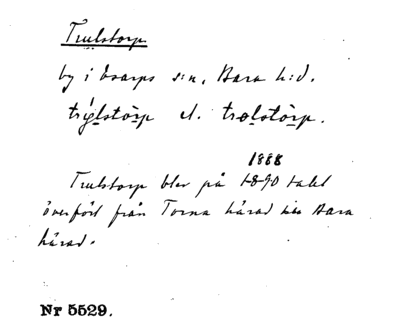 Trulstorp
by i Esarps s:n, Bara h:d.
trų̀lstòrp el. trolstòrp.
1888
Trulstorp blev på 1890 talet
överfört från Torna härad till Bara
härad.
Nr 5529.